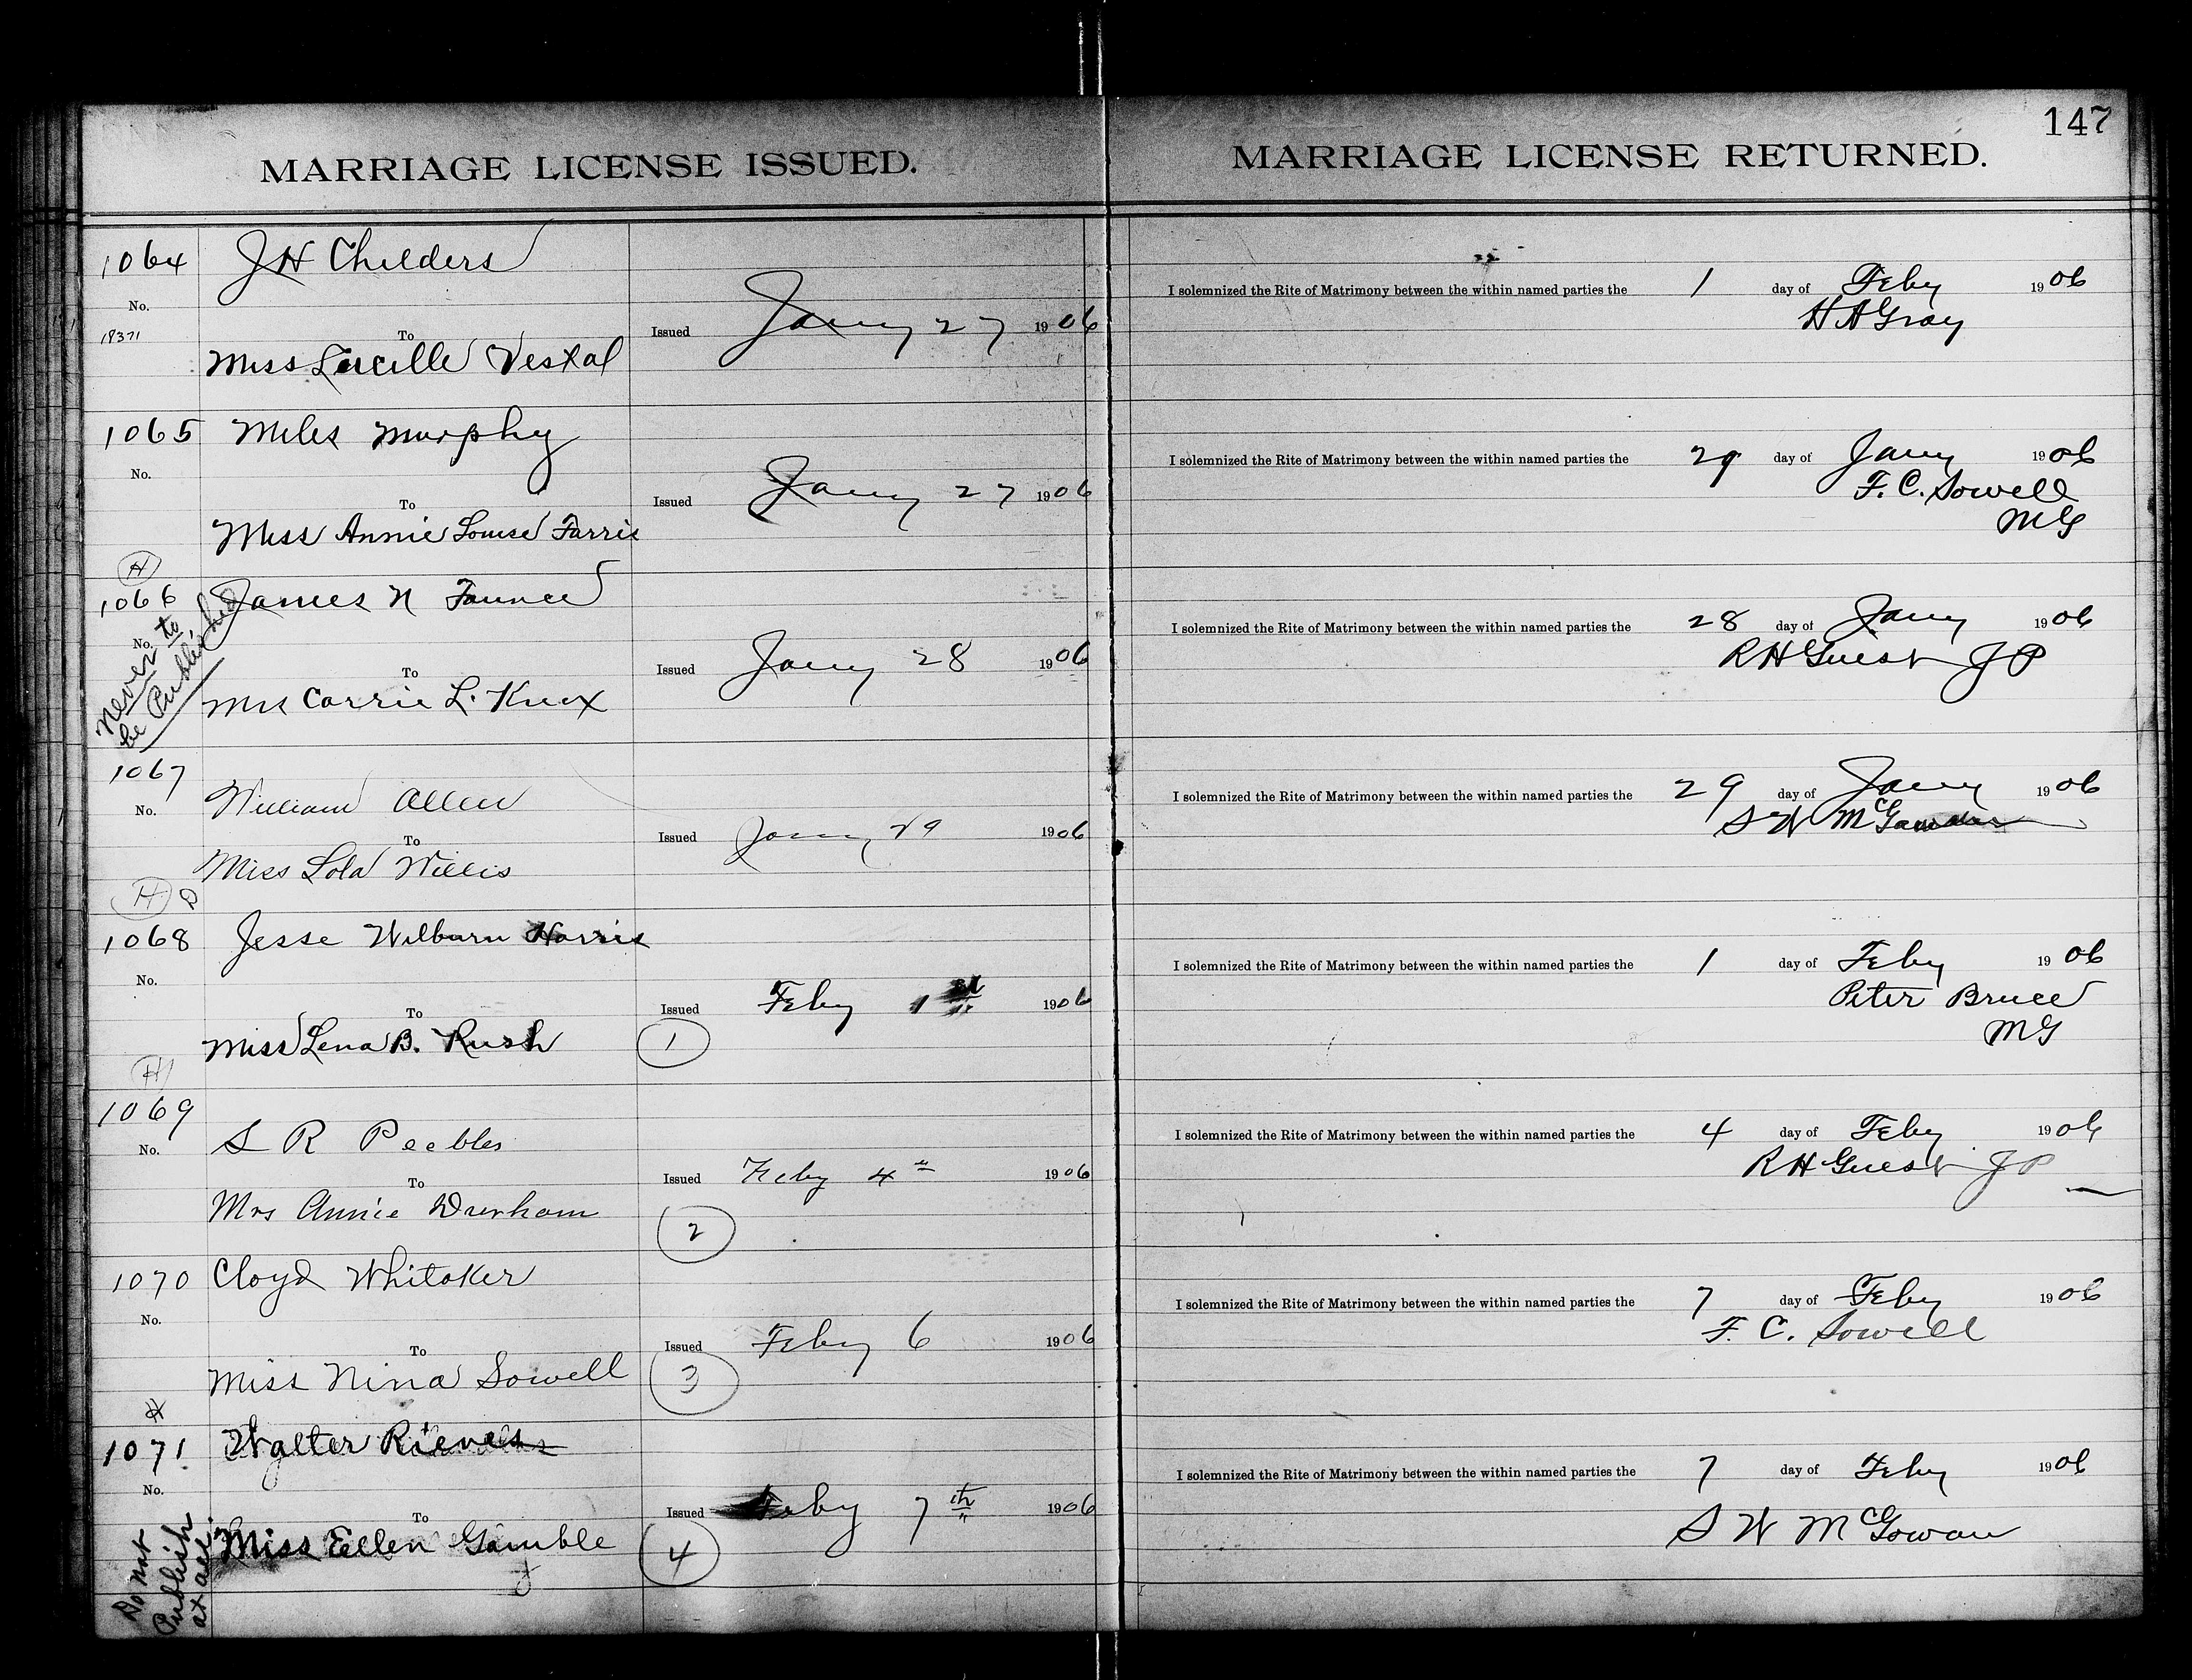 147
MARRIAGE LICENSE ISSUED.
MARRIAGE LICENSE RETURNED.
1064 J H Childers
No.
18371
To
Miss Lucille Vestal
Issued Jany 27 1906
I solemnized the Rite of Matrimony between the within named parties the 1 day of Feby 1906
H A Gray
1065 Miles Murphy
No.
To
Miss Annie Louise Farris
Issued Jany 27 1906
I solemnized the Rite of Matrimony between the within named parties the 29 day of Jany 1906
F. C. Sowell
MG
H
1066 James N Faunce
No.
never to
be Published
To
Mrs Carrie L. Knox
Issued Jany 28 1906
I solemnized the Rite of Matrimony between the within named parties the 28 day of Jany 1906
R H Guest J P
1067
William Allen
No.
To
Miss Lola Willis
Issued Jany 29 1906
I solemnized the Rite of Matrimony between the within named parties the 29 day of Jany 1906
S W
H D
1068 Jesse Wilburn Harris
No.
To
Miss Lena B. Rush
Issued Feby 1st 1906
1
I solemnized the Rite of Matrimony between the within named parties the 1 day of Feby 1906
Peter Bruce
MG
H
1069
S R Peebles
No.
To
Mrs Annie Durham
Issued Feby 4th 1906
2
I solemnized the Rite of Matrimony between the within named parties the 4 day of Feby 1906
R H Guest J P
1070 Cloyd Whitaker
No.
To
Miss Nina Sowell
Issued Feby 6 1906
3
I solemnized the Rite of Matrimony between the within named parties the 7 day of Feby 1906
F. C. Sowell
H
1071 Walter Rieves
No.
To
Miss Eellen Gamble
Do not
Publish
at all.
Issued Feby 7th 1906
4
I solemnized the Rite of Matrimony between the within named parties the 7 day of Feby 1906
S W McGowan